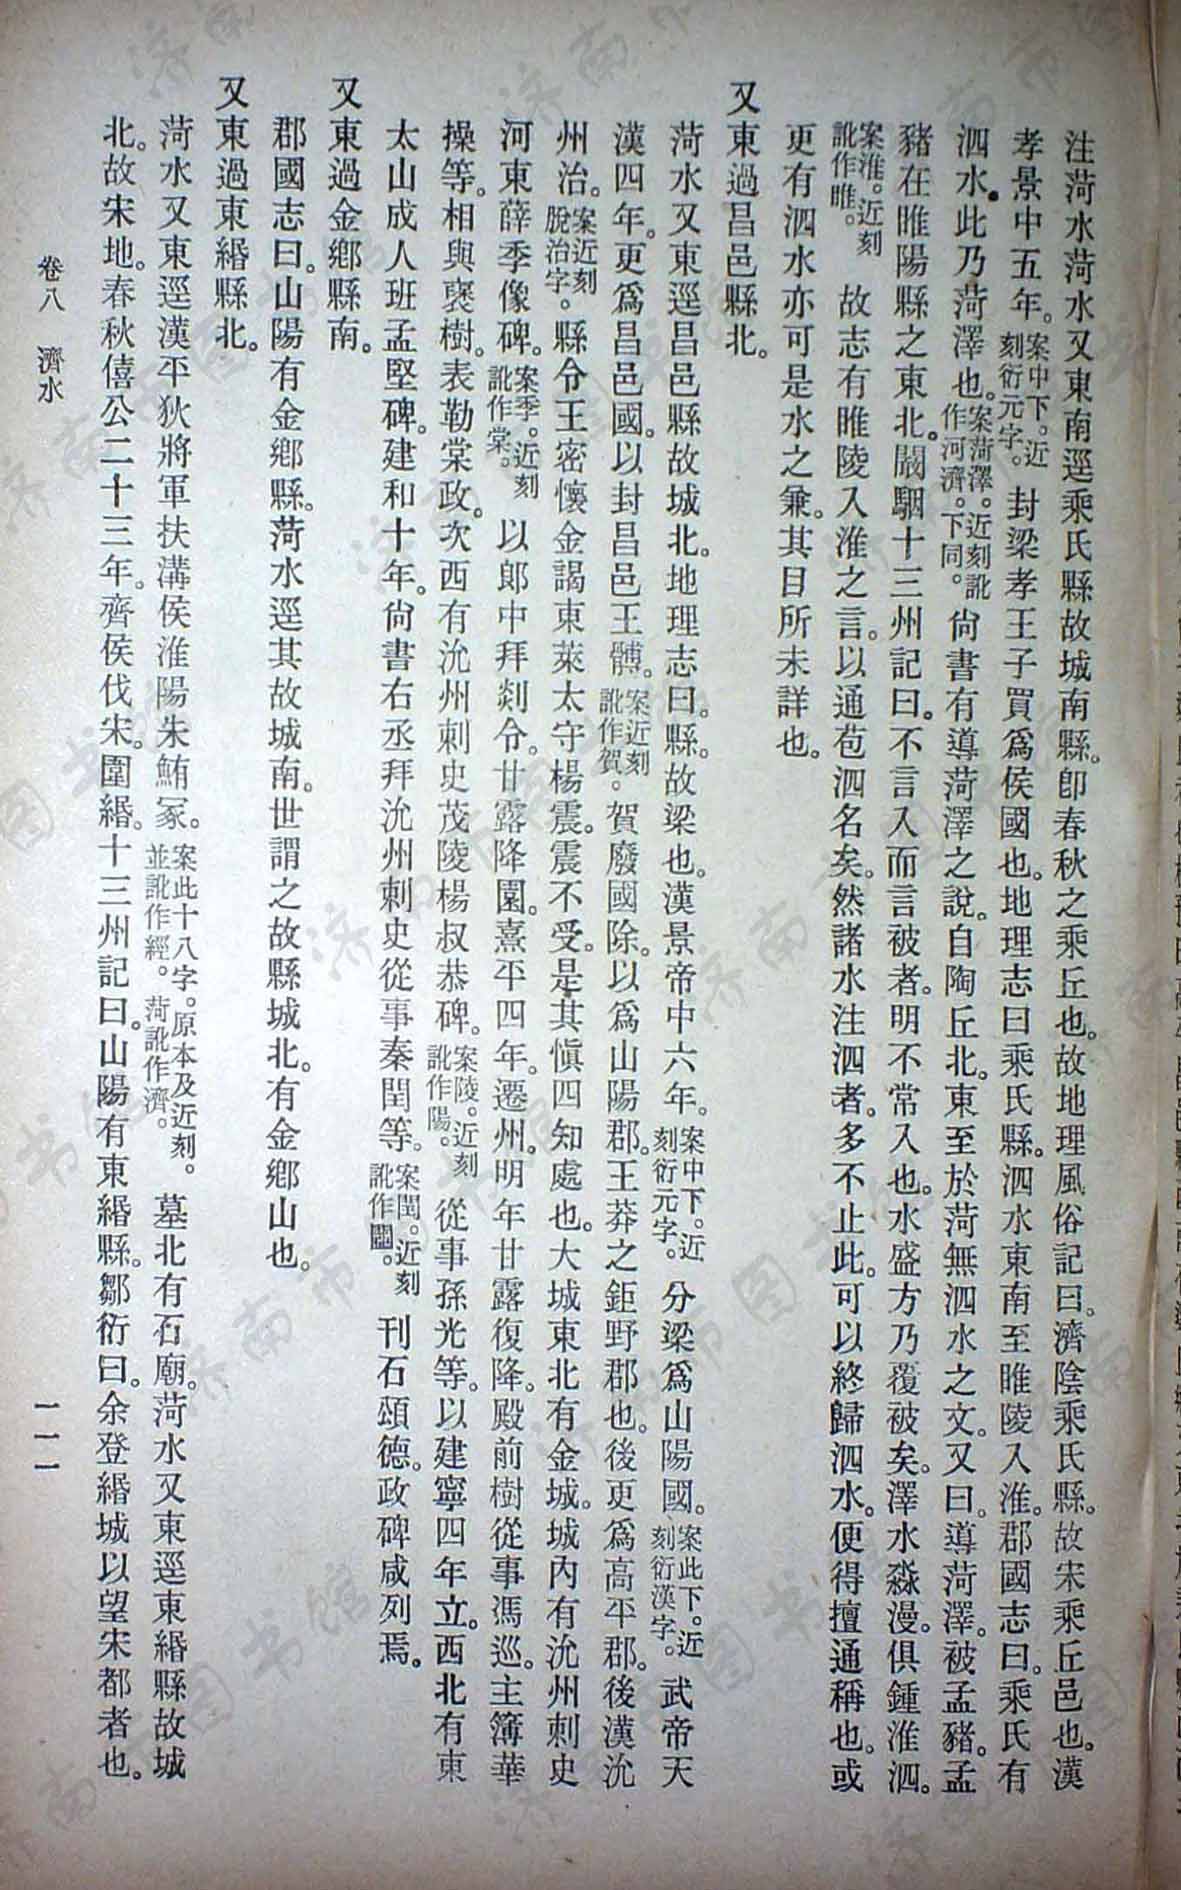 注菏水菏水又東南逕乘氏縣故城南縣。卽春秋之乘丘也。故地理風俗記曰。濟陰乘氏縣。故宋乘丘邑也。漢
孝景中五年。案中下。近刻衍元字。封梁孝王子買爲侯國也。地理志曰乘氏縣。泗水東南至睢陵入淮。郡國志曰。乘氏有
泗水。此乃菏澤也。案菏澤。近刻訛作河濟。下同。尙書有導菏澤之說。自陶丘北。東至於菏無泗水之文。又曰。導菏澤。被孟豬。孟
豬在睢陽縣之東北。闞駰十三州記曰。不言入而言被者。明不常入也。水盛方乃覆被矣。澤水淼漫。俱鍾淮泗。
案淮。近刻訛作睢。故志有睢陵入淮之言。以通苞泗名矣。然諸水注泗者。多不止此。可以終歸泗水。便得擅通稱也。或
更有泗水亦可是水之兼。其目所未詳也。
又東過昌邑縣北。
菏水又東逕昌邑縣故城北。地理志曰。縣。故梁也。漢景帝中六年。案中下。近刻衍元字。分梁爲山陽國。案此下。近刻衍漢字。武帝天
漢四年。更爲昌邑國。以封昌邑王髆。案近刻訛作賀。賀廢國除。以爲山陽郡。王莽之鉅野郡也。後更爲高平郡。後漢沇
州治。案近刻脫治字。縣令王密懷金謁東萊太守楊震。震不受。是其愼四知處也。大城東北有金城。城內有沇州刺史
河東薛季像碑。案季。近刻訛作棠。以郞中拜剡令。甘露降園。熹平四年。遷州。明年甘露復降。殿前樹從事馮巡。主簿華
操等。相與襃樹。表勒棠政。次西有沇州刺史茂陵楊叔恭碑。案陵。近刻訛作陽。從事孫光等。以建寧四年立。西北有東
太山成人班孟堅碑。建和十年。尙書右丞拜沇州刺史從事秦閏等。案閏。近刻訛作闘。刊石頌德。政碑咸列焉。
又東過金鄕縣南。
郡國志曰。山陽有金鄕縣。菏水逕其故城南。世謂之故縣城北。有金鄕山也。
又東過東緡縣北。
菏水又東逕漢平狄將軍扶溝侯淮陽朱鮪冢。案此十八字。原本及近刻。並訛作經。菏訛作濟。墓北有石廟。菏水又東逕東緡縣故城
北。故宋地。春秋僖公二十三年。齊侯伐宋。圍緡。十三州記曰。山陽有東緡縣。鄒衍曰。余登緡城以望宋都者也。
卷八 濟水
一一一